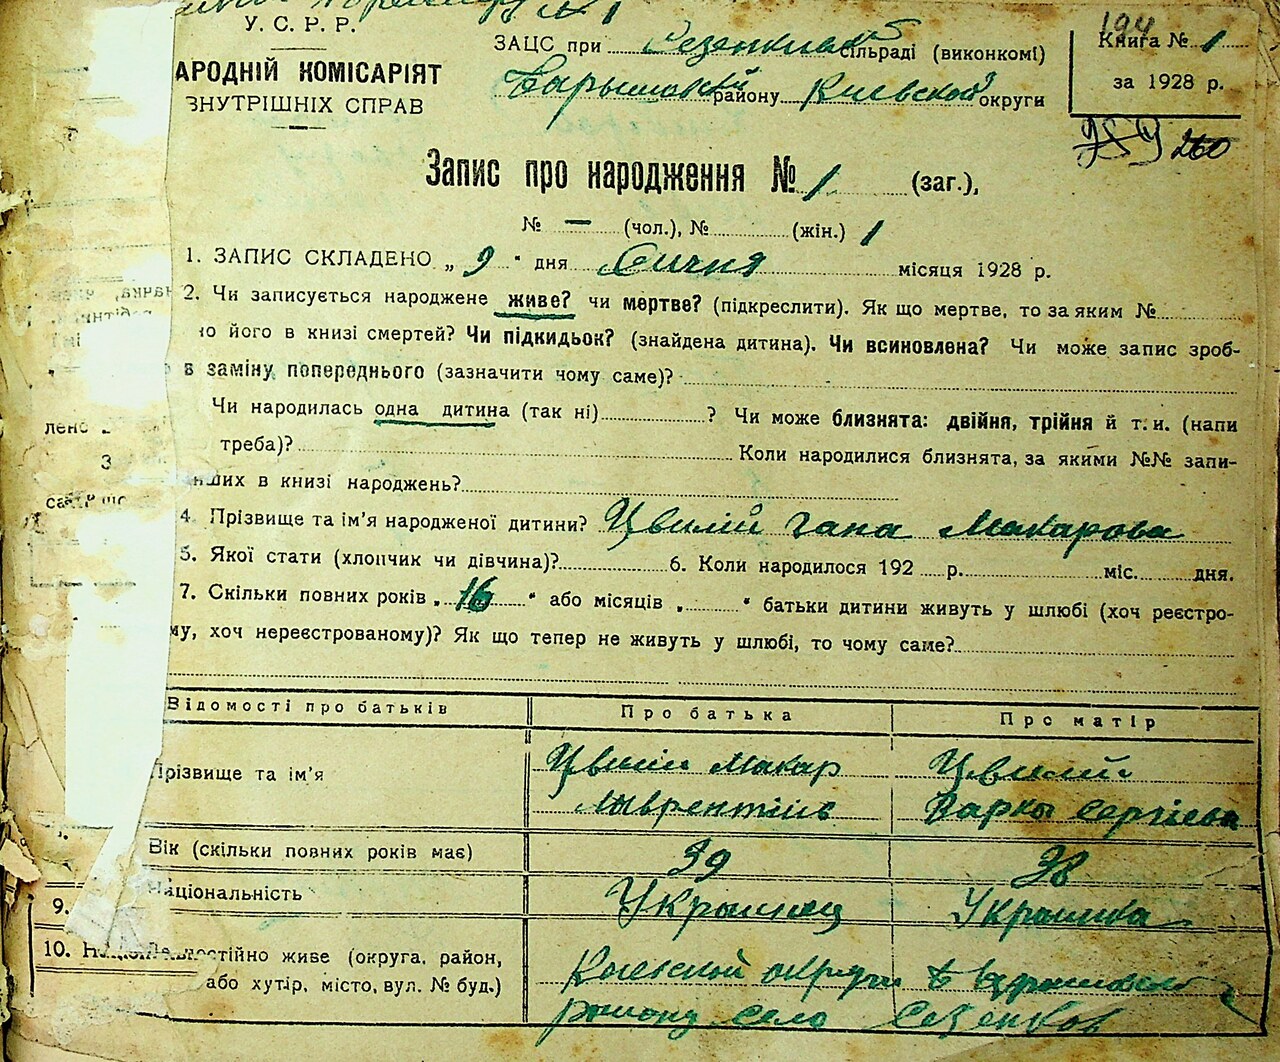 У. С. Р. Р.
АРОДНІЙ КОМІСАРІЯТ
ВНУТРІШНІХ СПРАВ
194
ЗАЦС при сільраді (виконкомі)
району Киевской округи
Книга № 1
за 1928 р.
260
Запис про народження № 1 (заг.),
№ — (чол.), № (жін.) 1
1. ЗАПИС СКЛАДЕНО „ 9 " дня Сичня місяця 1928 р.
2. Чи записується народжене живе? чи мертве? (підкреслити). Як що мертве, то за яким №
но його в книзі смертей? Чи підкидьок? (знайдена дитина). Чи всиновлена? Чи може запис зроб-
в заміну попереднього (зазначити чому саме)?
Чи народилась одна дитина (так ні) ? Чи може близнята: двійня, трійня й т. и. (напи
треба)? Коли народилися близнята, за якими №№ запи-
ших в книзі народжень?
4. Прізвище та ім'я народженої дитини? Цвилій Гана Макарова
5. Якої стати (хлопчик чи дівчина)? 6. Коли народилося 192 р. міс. дня.
7. Скільки повних років „ 16 " або місяців „ " батьки дитини живуть у шлюбі (хоч реєстро-
му, хоч нереєстрованому)? Як що тепер не живуть у шлюбі, то чому саме?
Відомості про батьків Про батька Про матір
Прізвище та ім'я Цвилій Макар Цвилий
Варка Сергієва
Вік (скільки повних років має) 39 38
9. Національність Украинец Украинка
10. постійно живе (округа, район, Киевской округи
або хутір, місто, вул. № буд.) району село